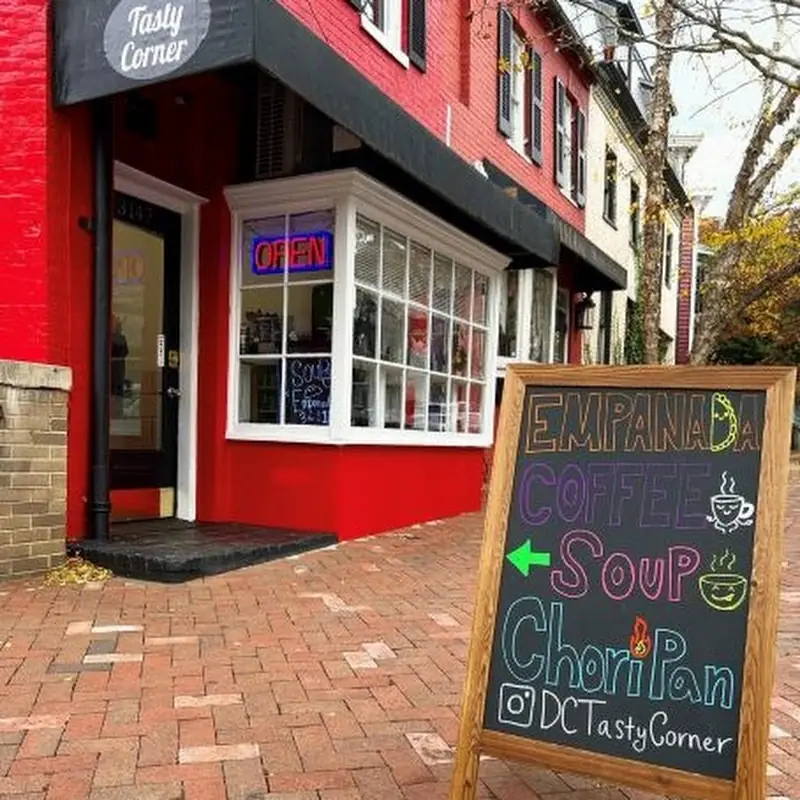 Tasty
Corner
3147
OPEN
Soup
EMPANADA
COFFEE
SOUP
ChoriPan
DCTastyCorner